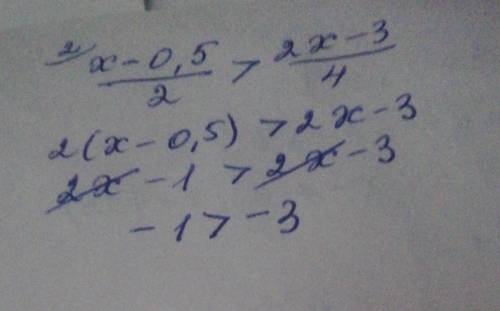 2/ x-0,5/2 > 2x-3/4
2(x-0,5) > 2x-3
2x-1 > 2x-3
-1 > -3